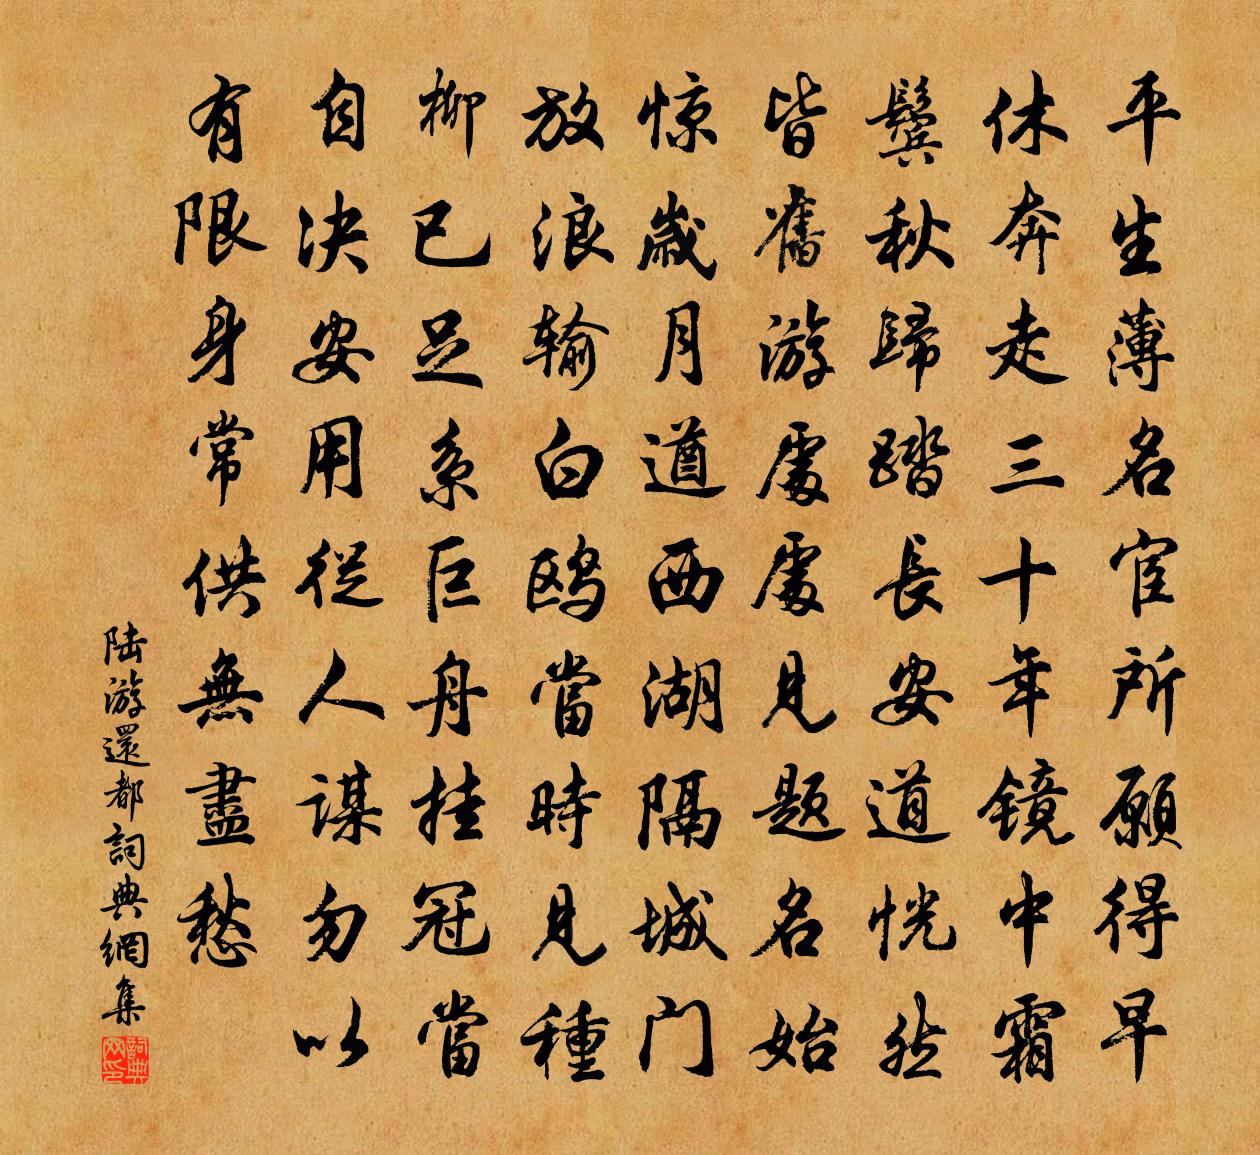 平生薄名宦所願得早
休奔走三十年镜中霜
鬓秋歸踏長安道恍然
皆舊游處處見题名始
惊歲月遒西湖隔城门
放浪输白鸥當時見種
柳已足系巨舟挂冠當
自决安用從人谋勿以
有限身常供無盡愁
陆游還都詞典網集
詞典网印